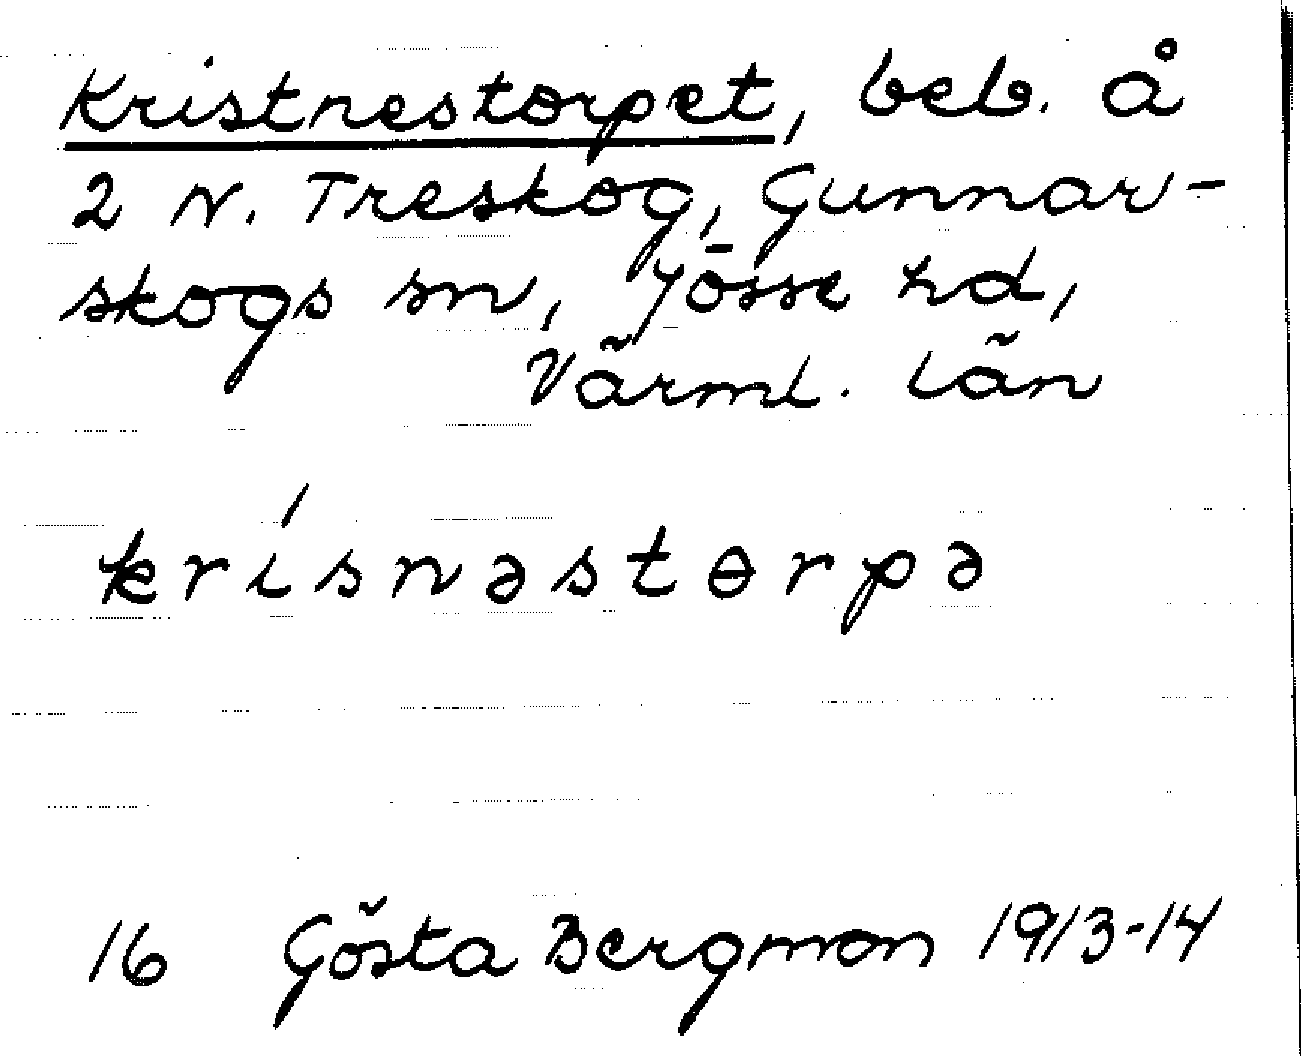 Kristnestorpet, beb. å
2 N. Treskog, Gunnar-
skogs sn, Jösse hd,
Värml. län
krísnəstɵrpə
16 Gösta Bergman 1913-14